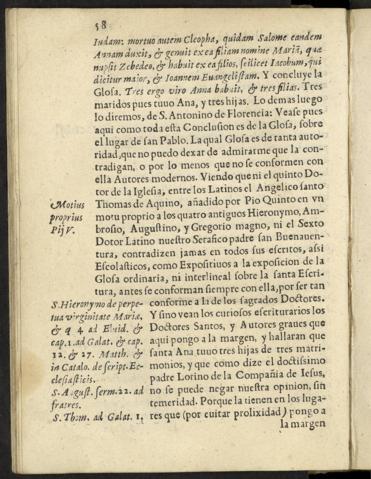 58
Iudam: mortuo autem Cleopha, quidam Salome eandem
Annam duxit, & genuit ex ea filiam nomine Mariã, quæ
nupsit Zebedeo, & habuit ex ea filios, scilicet Iacobum, qui
dicitur maior, & Ioannem Euangelistam. Y concluye la
Glosa. Tres ergo viro Anna habuit, & tres filias. Tres
maridos pues tuuo Ana, y tres hijas. Lo demas luego
lo diremos, de S. Antonino de Florencia: Vease pues
aqui como toda esta Conclusion es de la Glosa, sobre
el lugar de san Pablo. La qual Glosa es de tanta auto-
ridad, que no puedo dexar de admirarme que la con-
tradigan, o por lo menos que no se conformen con
ella Autores modernos. Viendo que ni el quinto Do-
tor de la Iglesia, entre los Latinos el Angelico santo
Thomas de Aquino, añadido por Pio Quinto en vn
motu proprio a los quatro antiguos Hieronymo, Am-
brosio, Augustino, y Gregorio magno, ni el Sexto
Dotor Latino nuestro Serafico padre san Buenauen-
tura, contradizen jamas en todos sus escritos, assi
Escolasticos, como Expositiuos a la exposicion de la
Glosa ordinaria, ni interlineal sobre la santa Escri-
tura, antes se conforman siempre con ella, por ser tan
conforme a la de los sagrados Doctores.
Y sino vean los curiosos escriturarios los
Doctores Santos, y Autores graues que
aqui pongo a la margen, y hallaran que
santa Ana tuuo tres hijas de tres matri-
monios, y que como dize el doctissimo
padre Lorino de la Compañia de Iesus,
no se puede negar nuestra opinion, sin
temeridad. Porque la tienen en los luga-
res que (por euitar prolixidad) pongo a
la margen
Motius
proprius
Pij V.
S. Hieronymo de perpe-
tua virginitate Mariæ,
& q 4 ad Elvid. &
cap. 1. ad Galat. & cap.
12. & 27. Matth. &
in Catalo. de script. Ec-
clesiasticis.
S. August. serm. 22. ad
fratres.
S. Thom. ad Galat. 1,